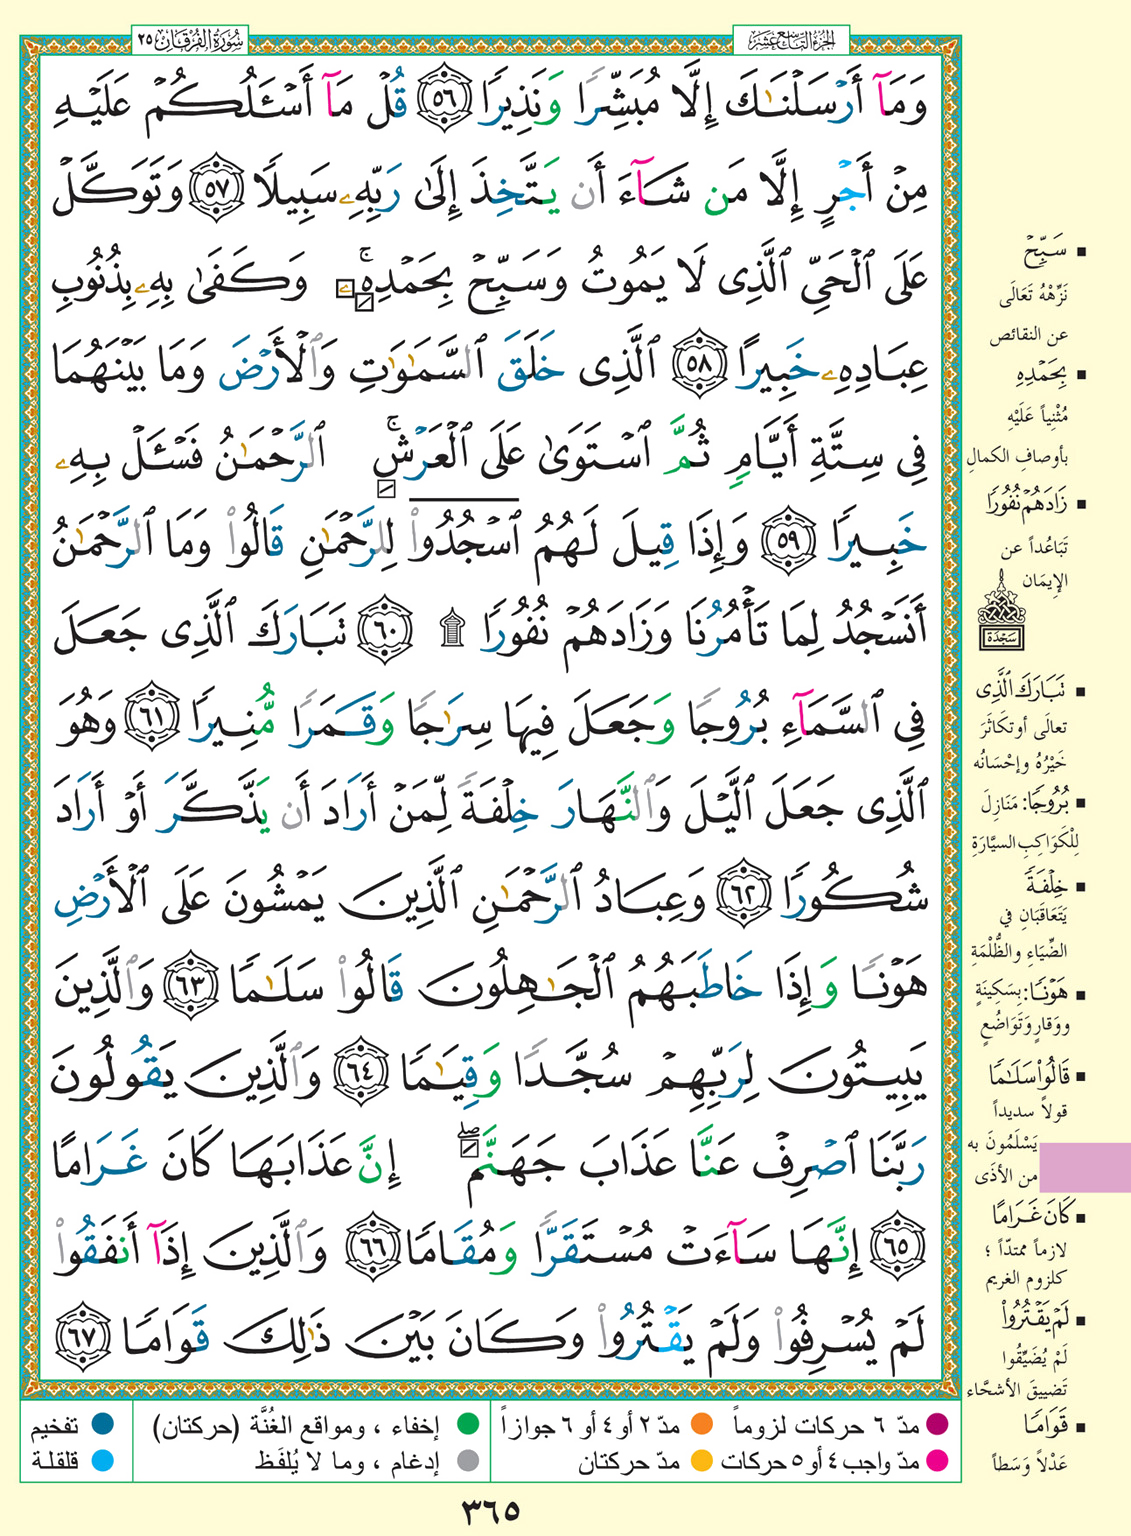 سُورَةُ الفُرْقَانِ ٢٥
الجُزءُ التَّاسِعَ عَشَرَ
وَمَآ أَرْسَلْنَٰكَ إِلَّا مُبَشِّرًا وَنَذِيرًا ٥٦ قُلْ مَآ أَسْـَٔلُكُمْ عَلَيْهِ
مِنْ أَجْرٍ إِلَّا مَن شَآءَ أَن يَتَّخِذَ إِلَىٰ رَبِّهِۦ سَبِيلًا ٥٧ وَتَوَكَّلْ
عَلَى ٱلْحَىِّ ٱلَّذِى لَا يَمُوتُ وَسَبِّحْ بِحَمْدِهِۦ ۚ وَكَفَىٰ بِهِۦ بِذُنُوبِ
عِبَادِهِۦ خَبِيرًا ٥٨ ٱلَّذِى خَلَقَ ٱلسَّمَٰوَٰتِ وَٱلْأَرْضَ وَمَا بَيْنَهُمَا
فِى سِتَّةِ أَيَّامٍ ثُمَّ ٱسْتَوَىٰ عَلَى ٱلْعَرْشِ ۚ ٱلرَّحْمَٰنُ فَسْـَٔلْ بِهِۦ
خَبِيرًا ٥٩ وَإِذَا قِيلَ لَهُمُ ٱسْجُدُوا۟ لِلرَّحْمَٰنِ قَالُوا۟ وَمَا ٱلرَّحْمَٰنُ
أَنَسْجُدُ لِمَا تَأْمُرُنَا وَزَادَهُمْ نُفُورًا ۩ ٦٠ تَبَارَكَ ٱلَّذِى جَعَلَ
فِى ٱلسَّمَآءِ بُرُوجًا وَجَعَلَ فِيهَا سِرَٰجًا وَقَمَرًا مُّنِيرًا ٦١ وَهُوَ
ٱلَّذِى جَعَلَ ٱلَّيْلَ وَٱلنَّهَارَ خِلْفَةً لِّمَنْ أَرَادَ أَن يَذَّكَّرَ أَوْ أَرَادَ
شُكُورًا ٦٢ وَعِبَادُ ٱلرَّحْمَٰنِ ٱلَّذِينَ يَمْشُونَ عَلَى ٱلْأَرْضِ
هَوْنًا وَإِذَا خَاطَبَهُمُ ٱلْجَٰهِلُونَ قَالُوا۟ سَلَٰمًا ٦٣ وَٱلَّذِينَ
يَبِيتُونَ لِرَبِّهِمْ سُجَّدًا وَقِيَٰمًا ٦٤ وَٱلَّذِينَ يَقُولُونَ
رَبَّنَا ٱصْرِفْ عَنَّا عَذَابَ جَهَنَّمَ ۖ إِنَّ عَذَابَهَا كَانَ غَرَامًا
٦٥ إِنَّهَا سَآءَتْ مُسْتَقَرًّا وَمُقَامًا ٦٦ وَٱلَّذِينَ إِذَآ أَنفَقُوا۟
لَمْ يُسْرِفُوا۟ وَلَمْ يَقْتُرُوا۟ وَكَانَ بَيْنَ ذَٰلِكَ قَوَامًا ٦٧
سَبِّحْ
نَزِّهْهُ تَعَالَى
عن النقائص
بِحَمْدِهِ
مُثْنِياً عَلَيْهِ
بأوصافِ الكمالِ
زَادَهُمْ نُفُورًا
تَبَاعُداً عن
الإيمَان
سَجْدَة
تَبَارَكَ ٱلَّذِى
تعالَى أو تكَاثَرَ
خَيْرُهُ وإحْسَانُه
بُرُوجًا: مَنَازِلَ
لِلْكَوَاكِبِ السيَّارَةِ
خِلْفَةً
يَتَعَاقَبَانِ في
الضِّيَاءِ والظُّلْمَةِ
هَوْنًا: بِسَكِينَةٍ
ووَقارٍ وَتَوَاضُعٍ
قَالُوا۟ سَلَٰمًا
قولاً سديداً
يَسْلَمُونَ به
من الأذَى
كَانَ غَرَامًا
لازماً ممتدّاً ؛
كلزوم الغريم
لَمْ يَقْتُرُوا۟
لَمْ يُضَيِّقُوا
تَضييقَ الأشحَّاء
قَوَامًا
عَدْلاً وَسَطاً
مدّ ٦ حركات لزوماً مدّ ٢ أو ٤ أو ٦ جوازاً إخفاء ، ومواقع الغُنَّة (حركتان) تفخيم
مدّ واجب ٤ أو ٥ حركات مدّ حركتان إدغام ، وما لا يُلفَظ قلقلة
٣٦٥